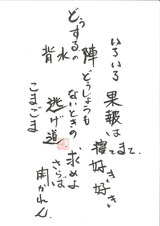 いろいろ果報は寝てまて
好き好き
陣どうしょうもないときの
求めよさらば開かれん
背水
逃げ道
どうするの
こまごま